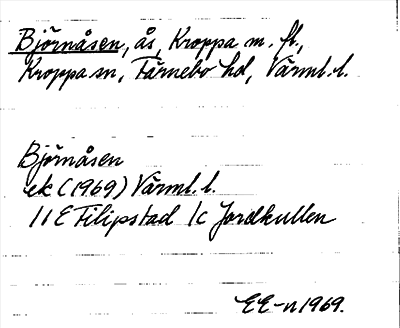 Björnåsen, ås, Kroppa m. fl.,
Kroppa sn, Färnebo hd, Värml. l.
Björnåsen
ek (1969) Värml. l.
11E Filipstad 1c Jordkullen
EE-n 1969.